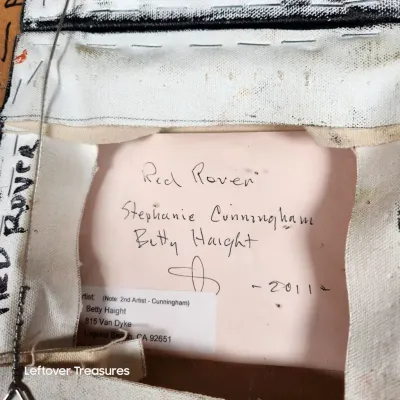 RED ROVER
Red Rover
Stephanie Cunningham
Betty Haight
- 2011 -
rtist: (Note: 2nd Artist - Cunningham)
Betty Haight
815 Van Dyke
CA 92651
Leftover Treasures